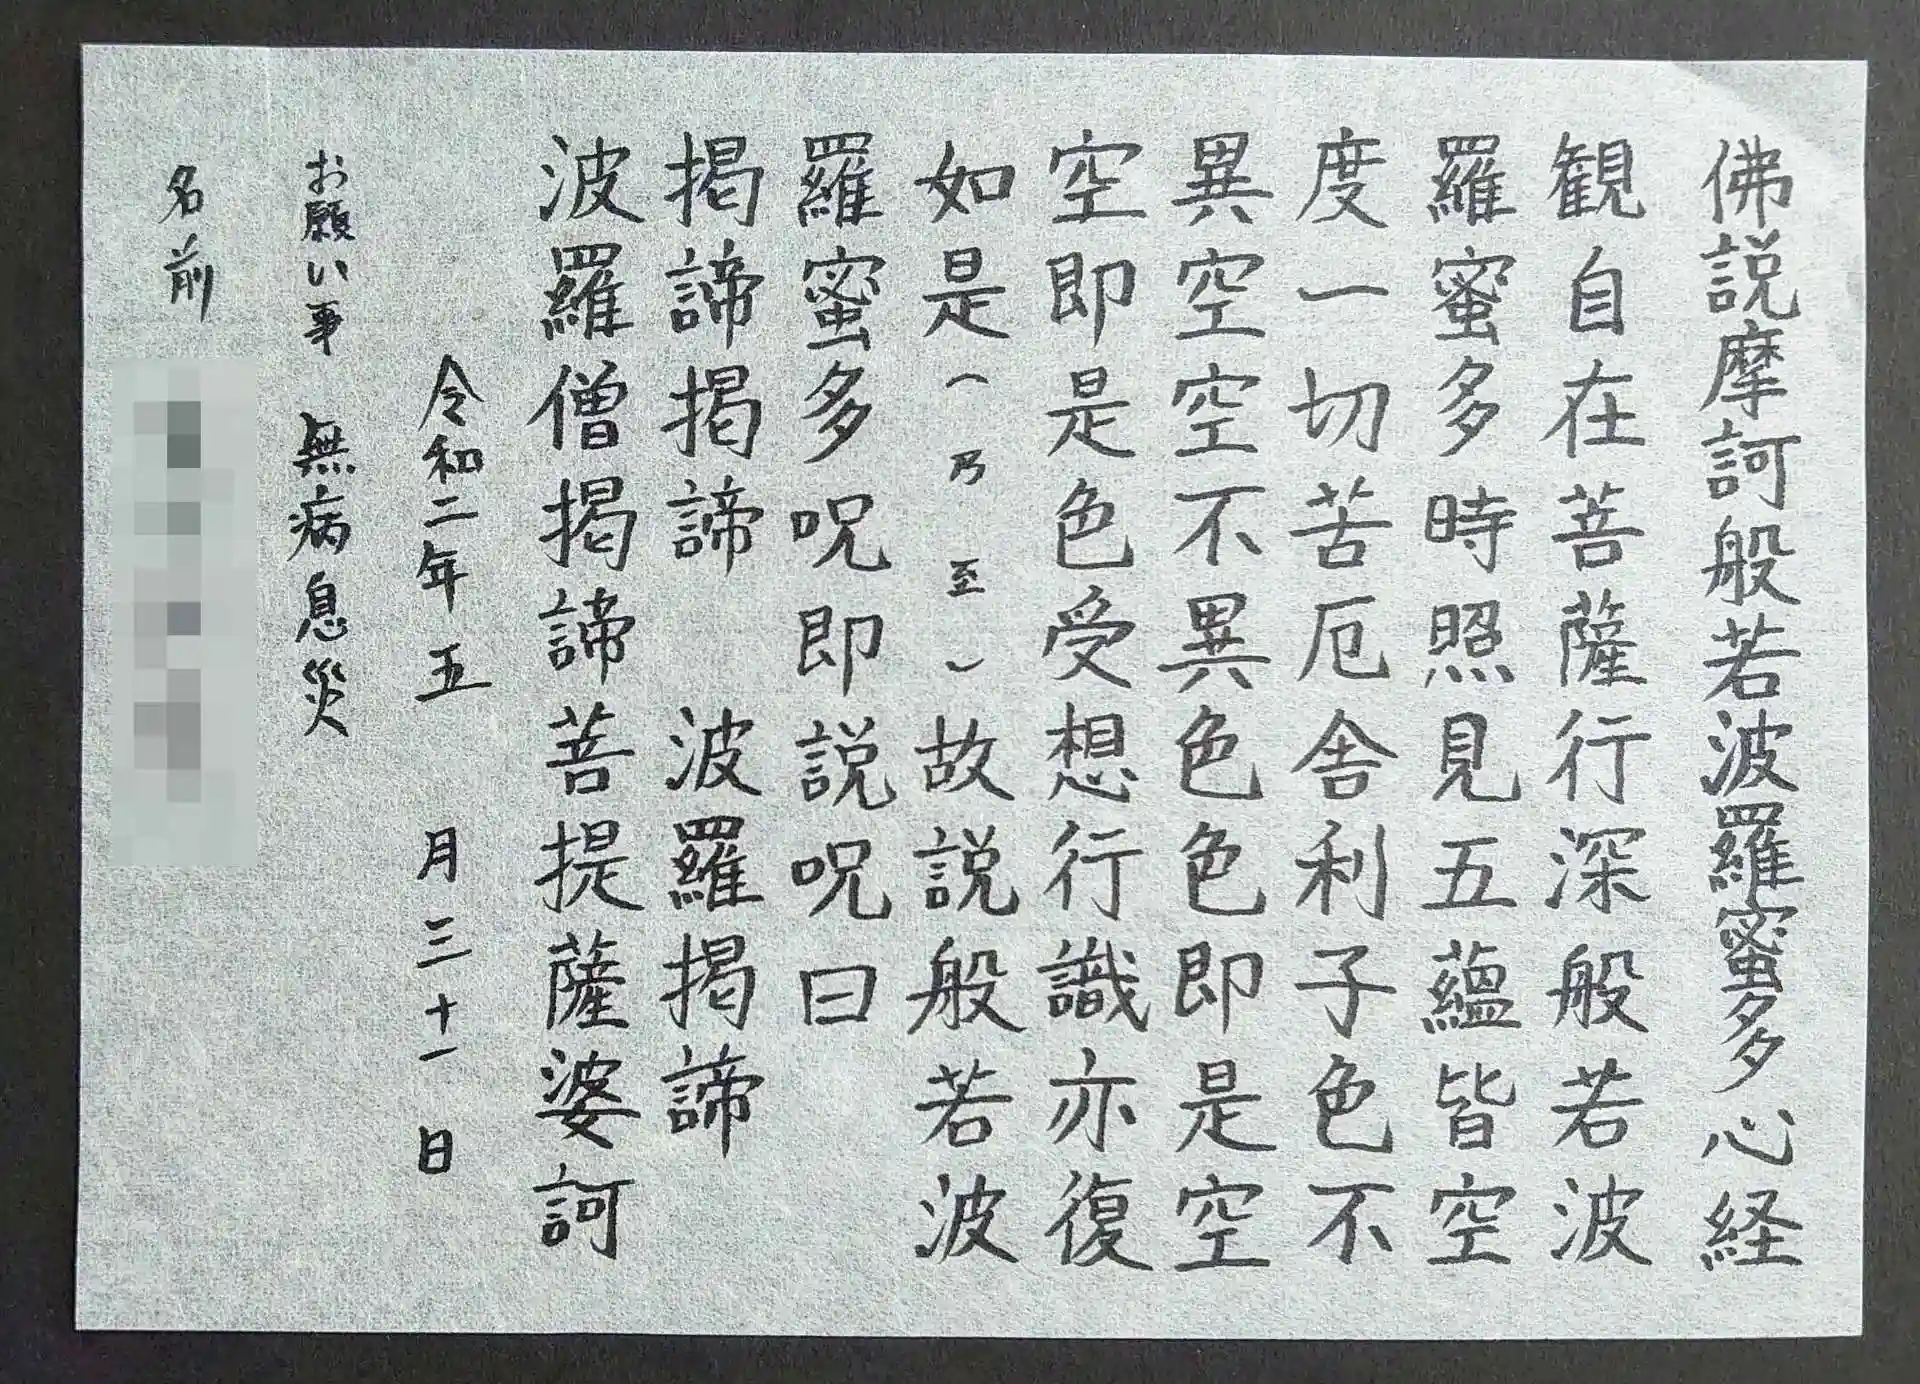 佛説摩訶般若波羅蜜多心経
観自在菩薩行深般若波
羅蜜多時照見五蘊皆空
度一切苦厄舎利子色不
異空空不異色色即是空
空即是色受想行識亦復
如是（乃至）故説般若波
羅蜜多呪即説呪曰
掲諦掲諦　波羅掲諦
波羅僧掲諦菩提薩婆訶
令和二年五月三十一日
お願い事　無病息災
名前